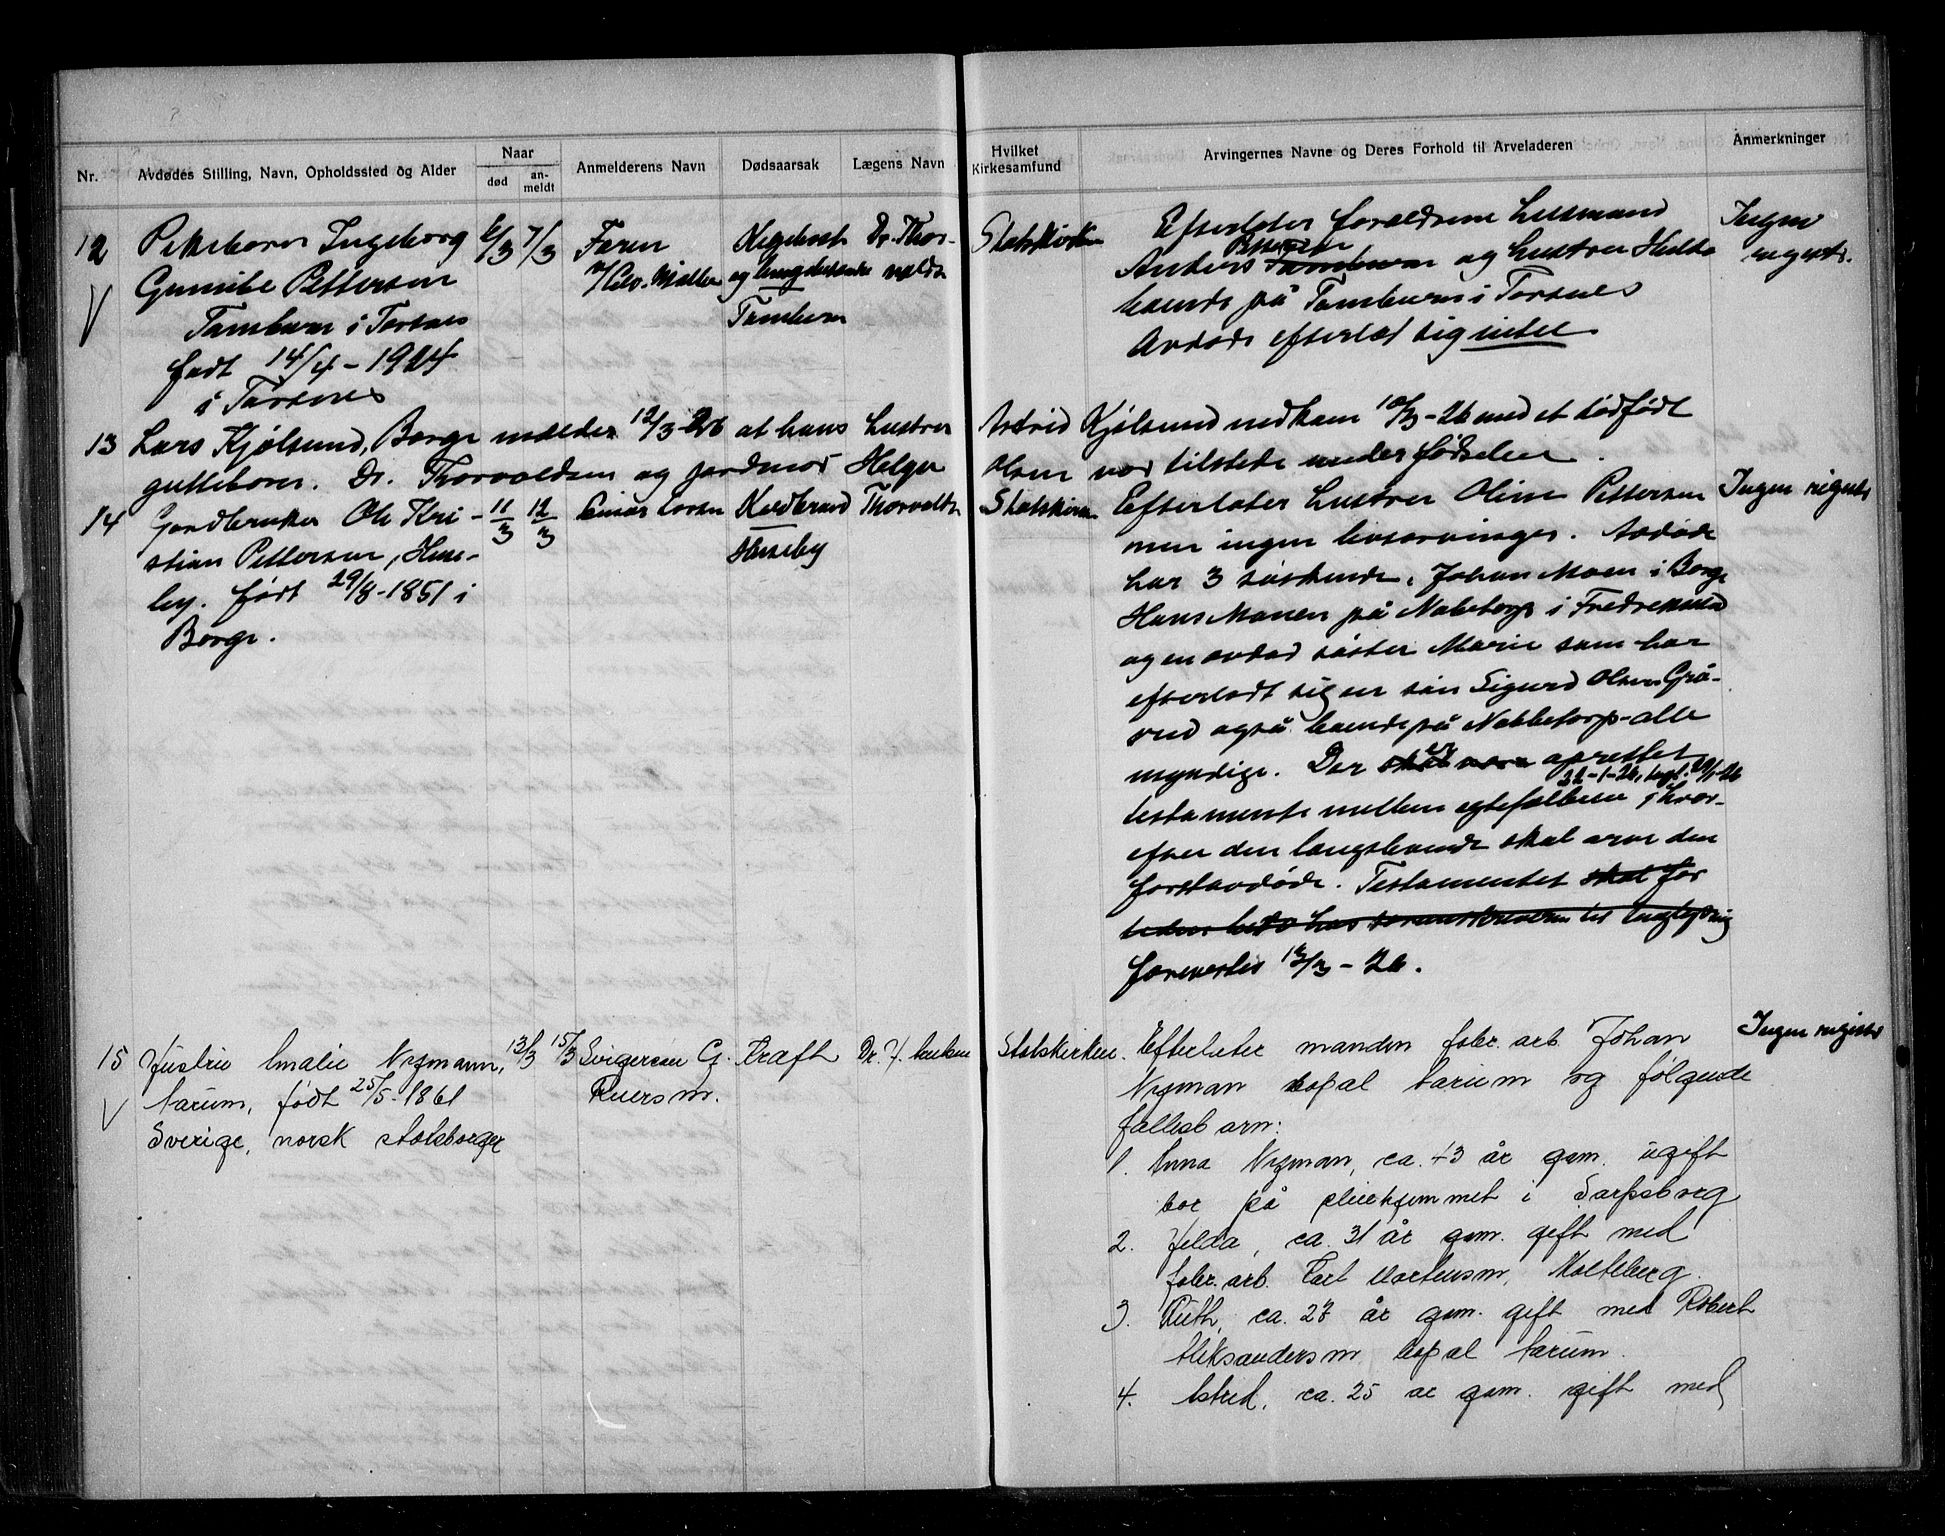 Nr.
Avdødes Stilling, Navn, Opholdssted og Alder
Naar
død
an-
meldt
Anmelderens Navn
Dødsaarsak
Lægens Navn
Hvilket
Kirkesamfund
Arvingernes Navne og Deres Forhold til Arveladeren
Anmerkninger
12
Pikebarn Ingeborg
Gunilde Pettersen
Tamburn i Torsnes
født 14/4 - 1924
i Torsnes
6/3
7/3
Faren
v/ Møller
og
Tamburn
Dr. Thor-
valdsen
Statskirken
Efterlater forældrene husmand
Pettersen
Anders Tamburn og hustru Hulda
boende på Tamburn i Torsnes
Avdøde efterlot sig intet
Ingen
registr.
13 Lars Kjølsund, Borge melder 12/3-26 at hans hustru
gutteborn. Dr. Thorvaldsen og jordmor Helga
Astrid Kjølsund nedkom 10/3-26 med et dødfødt
Olsen var tilstede under fødselen.
14
Gardbruker Ole Kri-
stian Pettersen, Huse-
by. født 29/8-1851 i
Borge.
11/3
12/3
Einar Larsen
Koldbrand
Huseby
Thorvaldsen
Statskirken
Efterlater hustru Oline Pettersen
men ingen livsarvinger. Avdøde
har 3 søskende, Johan Moen i Borge
Hans Monen på Nabbetorp i Fredrikstad
og en avdød søster Marie som har
efterladt sig en søn Sigurd Olsen Grå-
rud også boende på Nabbetorp - alle
myndige. Der skal være er oprettet
22-1-26, tingl. 29/1-26
testamente mellem egtefællene, hvor-
efter den længstlevende skal arve den
førstavdøde. Testamentet skal før
til tinglysning
forevistes 12/3-26.
Ingen registr
15
Hustru Amalie Nyman,
Narum, født 25/5-1861
Sverige, norsk statsborger
13/3
15/3
Svigersøn G.
Iversen.
Kræft
Dr. J.
Statskirken.
Efterlater manden fabr. arb. Johan
Nyman bopæl Narum og følgende
fællesbarn:
1. Anna Nyman, ca. 43 år gam. ugift
bor på pleiehjemmet i Sarpsborg
2. Hilda, ca. 31 år gam. gift med
fabr. arb. Karl Mortensen, Molteberg.
3. Ruth, ca. 27 år gam. gift med Robert
Aleksandersen bopæl Narum.
4. Astrid, ca. 25 år gam. gift med
Ingen registr